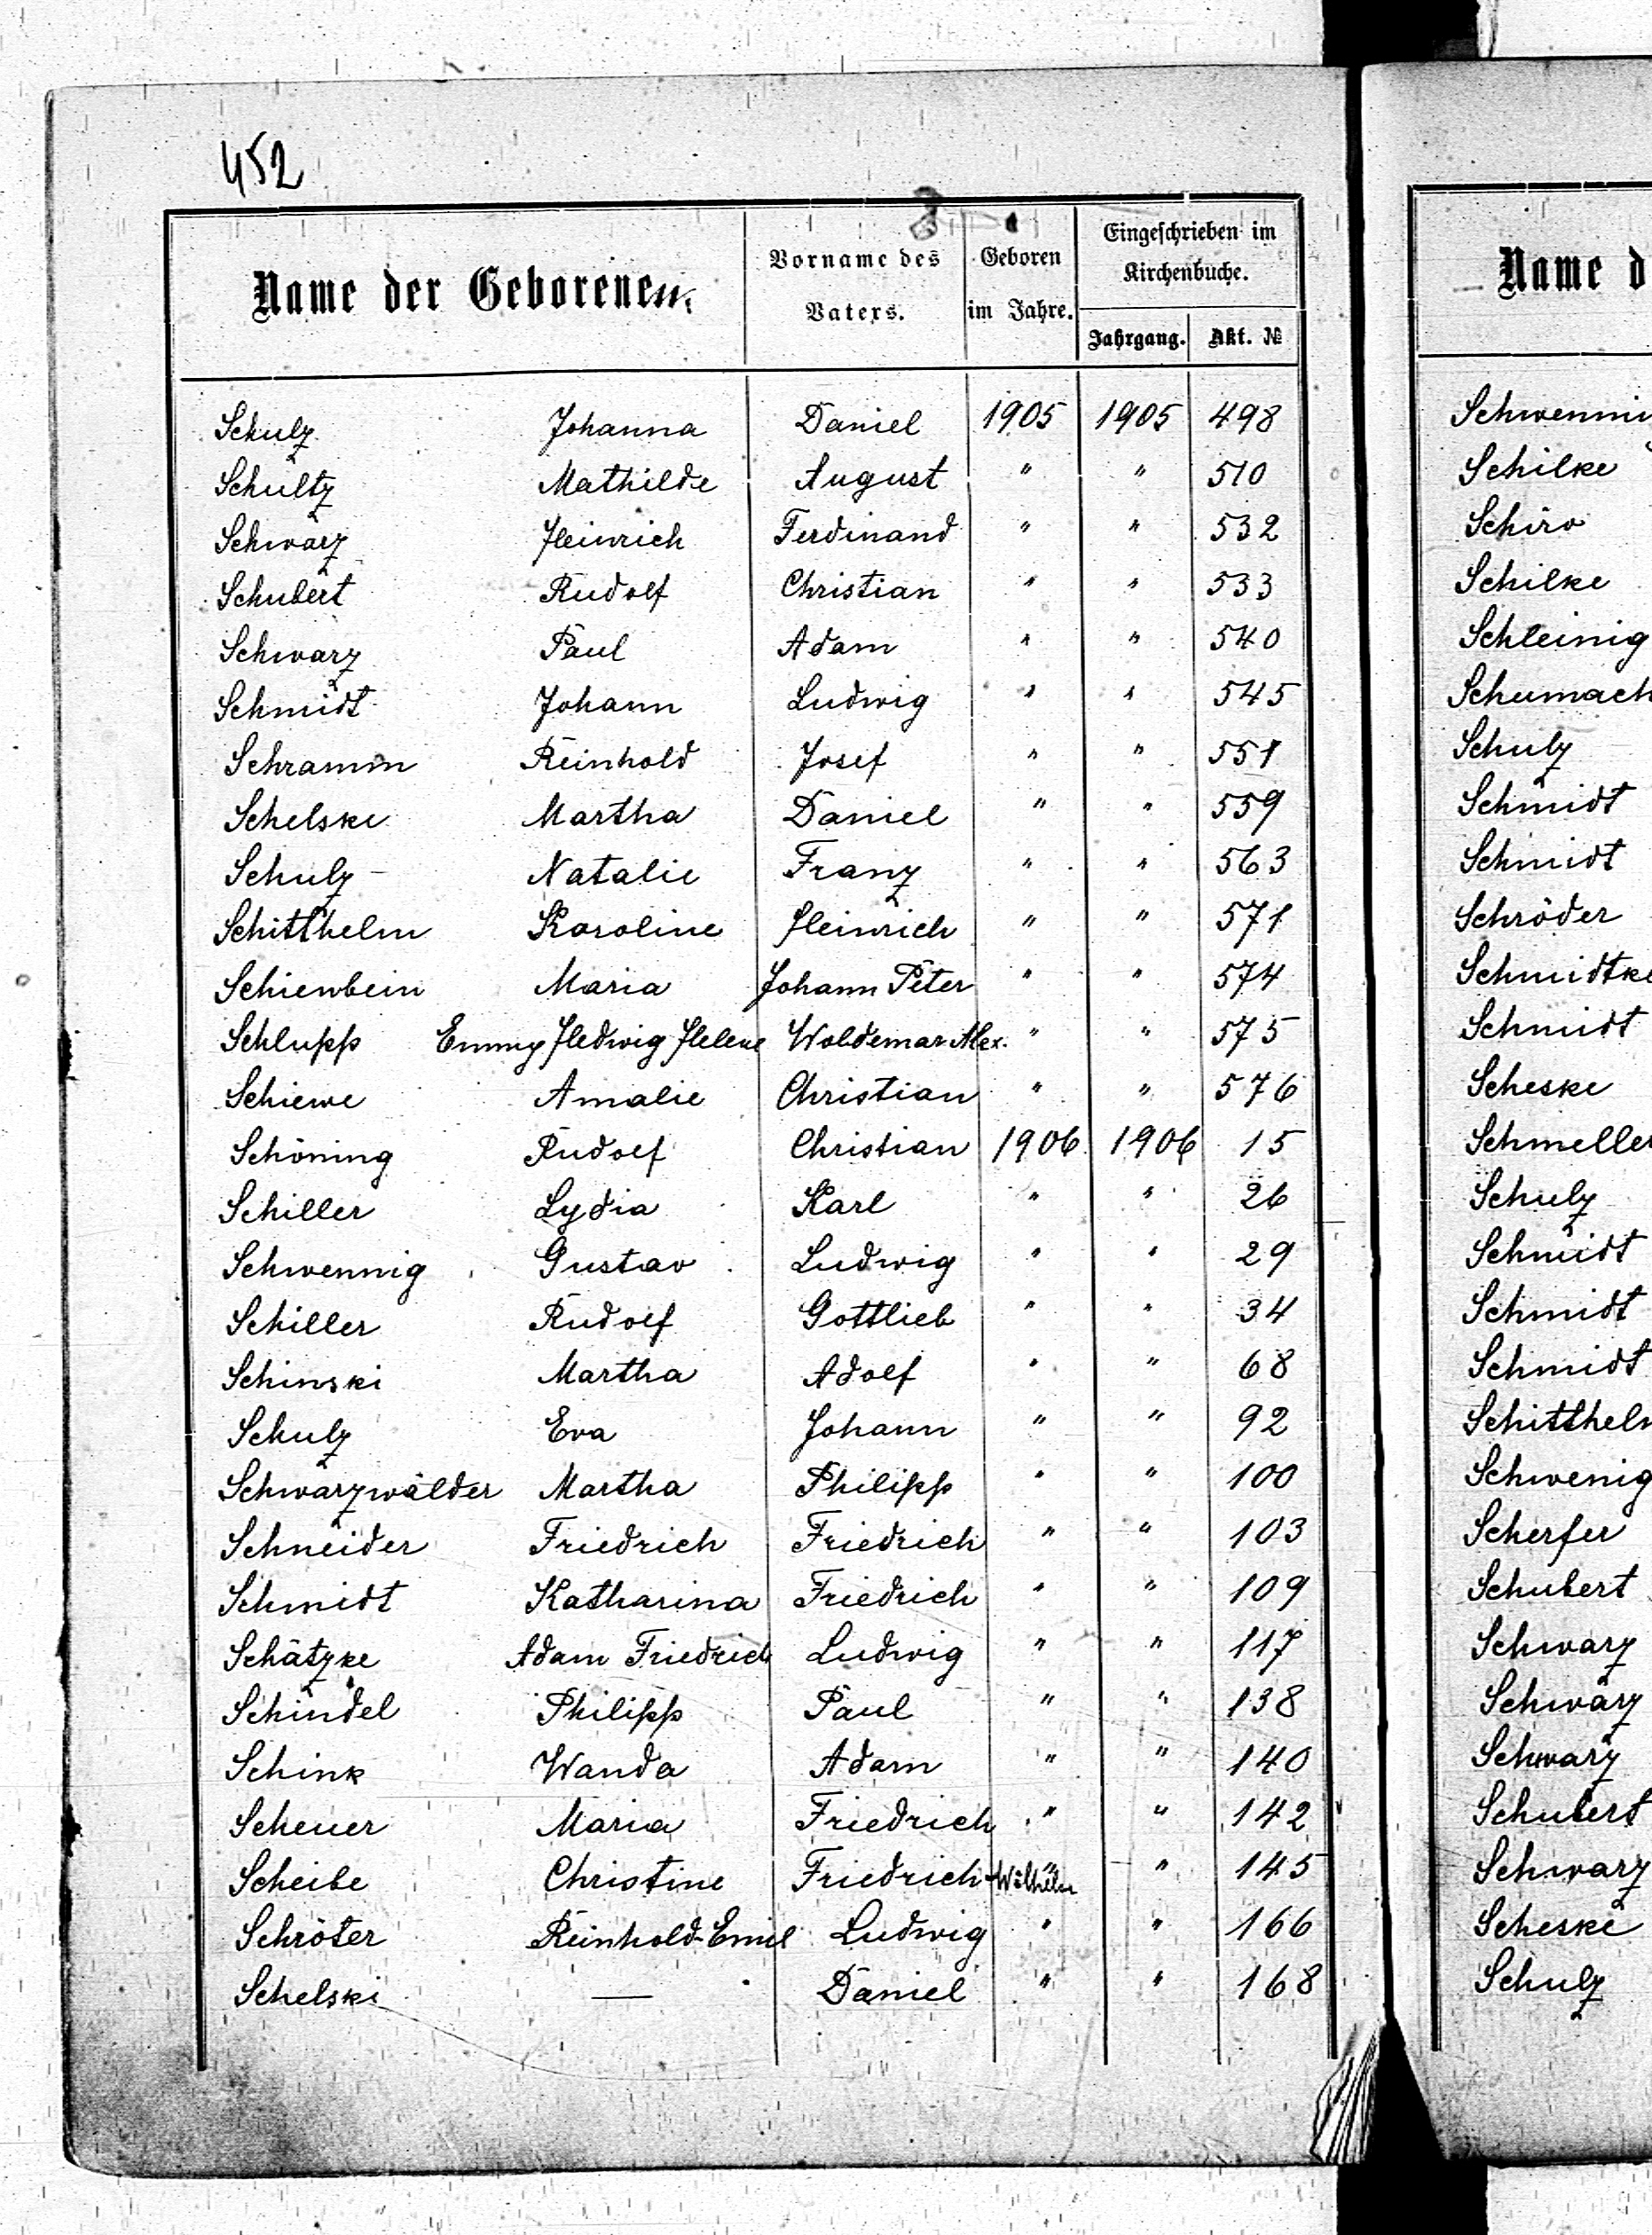 452
Name der Geborenen.
Vorname des Vaters.
Geboren im Jahre.
Eingeschrieben im Kirchenbuche.
Jahrgang. Akt. №
Schulz Johanna Daniel 1905 1905 498
Schultz Mathilde August " " 510
Schwarz Heinrich Ferdinand " " 532
Schubert Rudolf Christian " " 533
Schwarz Paul Adam " " 540
Schmidt Johann Ludwig " " 545
Schramm Reinhold Josef " " 551
Schelske Martha Daniel " " 559
Schulz Natalie Franz " " 563
Schitthelm Karoline Heinrich " " 571
Schienbein Maria Johann Peter " " 574
Schlupp Emmy Hedwig Helene Woldemar Alex. " " 575
Schiewe Amalie Christian " " 576
Schöning Rudolf Christian 1906 1906 15
Schiller Lydia Karl " " 26
Schwennig Gustav Ludwig " " 29
Schiller Rudolf Gottlieb " " 34
Schinski Martha Adolf " " 68
Schulz Eva Johann " " 92
Schwarzwälder Martha Philipp " " 100
Schneider Friedrich Friedrich " " 103
Schmidt Katharina Friedrich " " 109
Schätzke Adam Friedrich Ludwig " " 117
Schindel Philipp Paul " " 138
Schink Wanda Adam " " 140
Scheuer Maria Friedrich " " 142
Scheibe Christine Friedrich-Wilhelm " " 145
Schröter Reinhold-Emil Ludwig " " 166
Schelski — Daniel " " 168
Name d
Schwenni
Schilke
Schiro
Schilke
Schleinig
Schumach
Schulz
Schmidt
Schmidt
Schröder
Schmidtke
Schmidt
Scheske
Schmeller
Schulz
Schmidt
Schmidt
Schmidt
Schitthelm
Schwenig
Scherfer
Schubert
Schwarz
Schwarz
Schwarz
Schubert
Schwarz
Scheske
Schulz